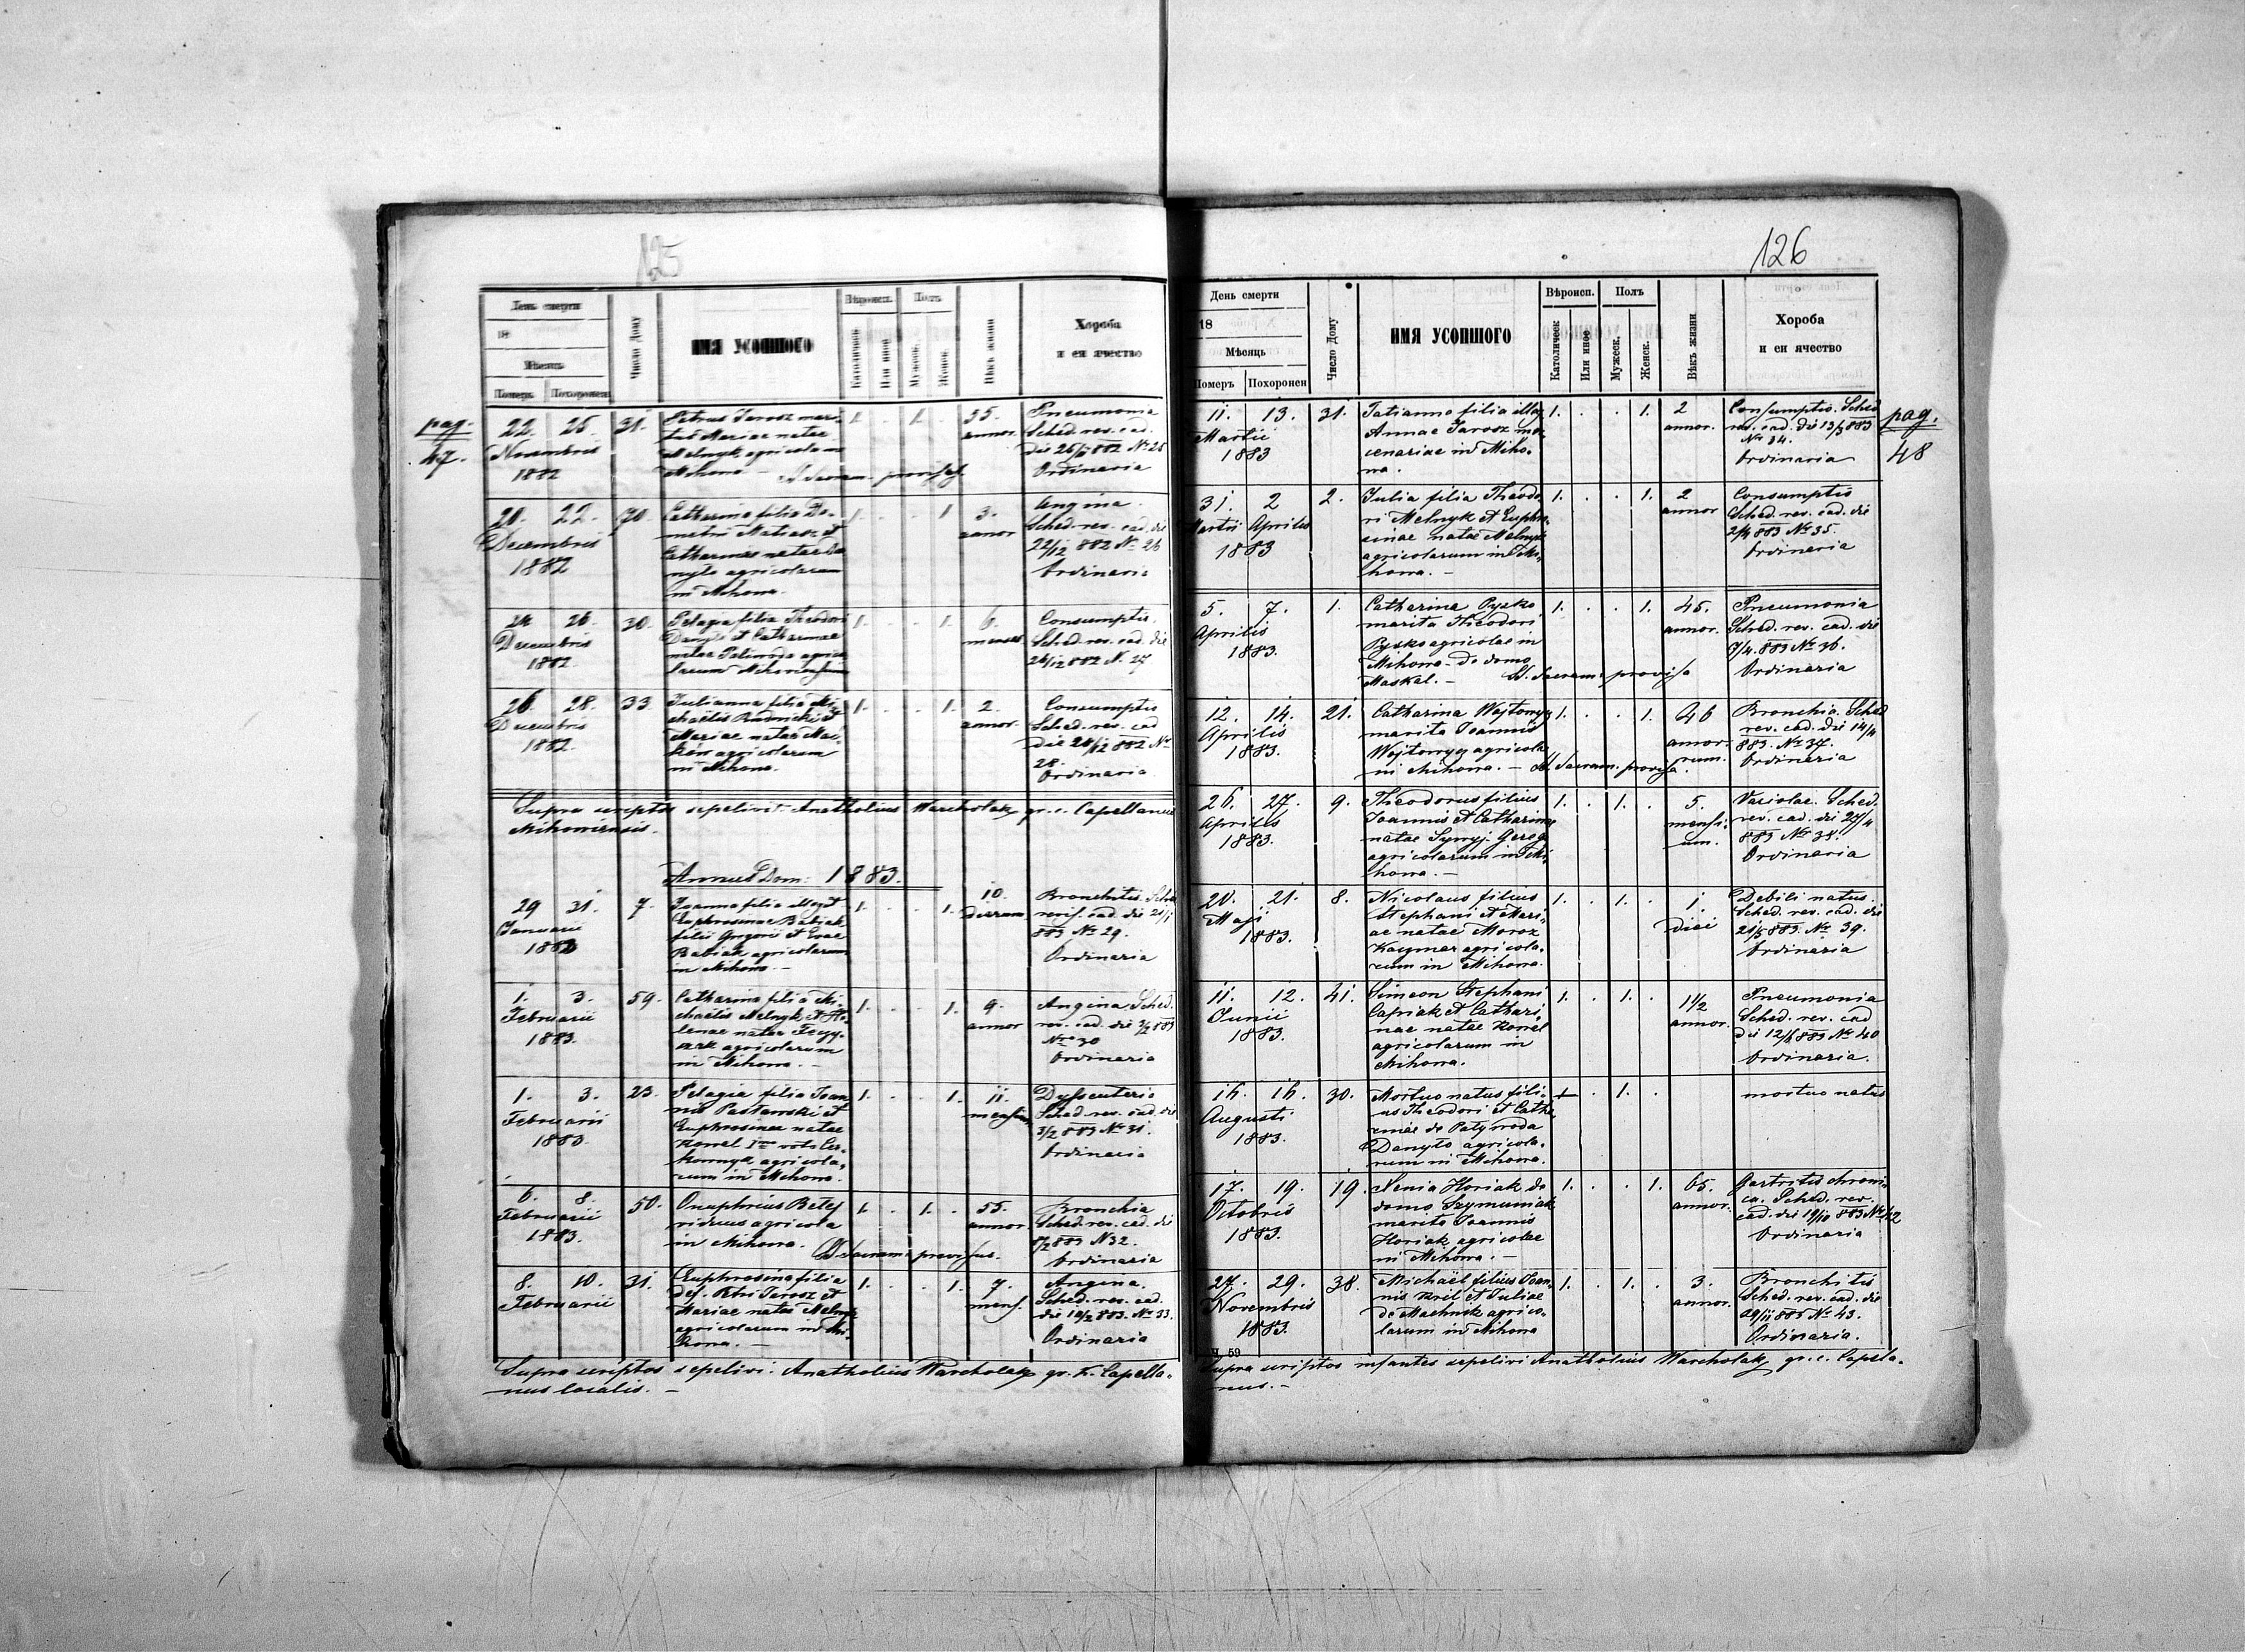 125
День смерти
18
Мѣсяць
Померъ Похоронен
Число Дому
ИМЯ УСОПШОГО
Вѣроисп.
Католическ
Или иное
Полъ
Мужеск.
Женск.
Вѣкъ жизни
Хороба
и еи ячество
pag.
47.
22. 25. 31. Petrus Jarosz mari-
Novembris
1882
tus Mariae natae
Melnyk agricola in
Mihowa. — S. Sacram. provisus.
1. . 1. . 35.
annor.
Pneumonia
Sched. rev. cad.
Ordinaria
20. 22. 70. Catharina filia De-
Decembris
1882
metrii Matiask et
Catharinae natae Da-
nyło agricolarum
in Mihowa.
1. . . 1 3.
annor
Angina.
Sched. rev. cad. die
22/12 882 No 26
Ordinaria
24 26. 30. Pelagia filia Theodori
Decembris
1882.
Danyło et Catharinae
natae Patinoda agrico-
larum
1. . . 1. 6.
menses
Consumptio.
Sched. rev. cad. die
26/12 882 N. 27
26. 28. 33. Julianna filia Mi-
Decembris
1882.
chaëlis Rudnicki et
Mariae natae
agricolarum
in Mihowa.
1. . . 1. 2.
annor.
Consumptio
Sched. rev. cad
die 28/12 882 No
28.
Ordinaria
Supra scriptos sepelivit Anatholius Warcholak gr. c. Capellanus
Mihowiensis.
Annus Dom: 1883.
29 31. 7. Joanna filia
Januarii
1883
Euphrosinae Babiak
filii Grigorii et Evae
Babiak agricolarum
in Mihowa. —
1. . . 1. 10.
dierum
Bronchitis. Sched.
revis. cad. die 31/1
883 No 29.
Ordinaria
1. 3. 59. Catharina filia Mi-
Februarii
1883.
chaëlis Melnyk et He-
lenae natae
agricolarum
in Mihowa. —
1. . . 1. 9.
annor
Angina Sched.
rev. cad. die 3/2 883
Nro 30
Ordinaria
1. 3. 23. Pelagia filia Joan-
Februarii
1883.
nis Pasławski et
Euphrosinae natae
Korrel Imo voto
agricola-
rum in Mihowa.
1. . . 1. 11.
mensium
Dyssenteria
Sched. rev. cad. die
3/2 883 No 31.
Ordinaria
6. 8. 50. Onuphrius Betej
Februarii
1883.
viduus agricola
in Mihowa. S. Sacram: provisus.
1. . 1. . 55.
annor
Bronchia
Sched. rev. cad. die
8/2 883 N32.
Ordinaria
8. 10. 31. Euphrosina filia
Februarii
def. Petri Jarosz et
Mariae natae Melnyk
agricolarum in Mi-
howa. —
1. . . 1. 7.
mens.
Angina.
Sched. rev. cad.
die 10/2 883. No 33.
Ordinaria
Supra scriptos sepelivi. Anatholius Warcholak gr. k. Capella-
nus localis. —
126
День смерти
18
Мѣсяць
Померъ Похоронен
Число Дому
ИМЯ УСОПШОГО
Вѣроисп.
Католическ
Или иное
Полъ
Мужеск.
Женск.
Вѣкъ жизни
Хороба
и еи ячество
pag.
48
11. 13. 31. Tatianna filia illeg.
Martii
1883
Annae Jarosz mer-
cenariae in Miho-
wa.
1. . . 1. 2
annor.
Consumptio. Sched
rev. cad. die 13/3 883
No 34.
Ordinaria
31. 2 2. Julia filia Theodo-
Martii Aprilis
1883
ri Melnyk et Euphro-
sinae natae Melnyk
agricolarum in Mi-
howa. —
1. . . 1. 2
annor
Consumptio
Sched. rev. cad. die
2/4 883 No 35.
Ordinaria
5. 7. 1. Catharina Pysko
Aprilis
1883.
marita Theodori
Pysko agricolae in
Mihowa - de domo
Maskal. — S. Sacram: provisa
1. . . 1. 45.
annor.
Pneumonia
Sched. rev. cad. die
7/4. 883 No 36.
Ordinaria
12. 14. 21. Catharina Wojtowycz
Aprilis
1883.
marita Joannis
Wojtowycz agricola
in Mihowa. — S. Sacram. provisa.
1. . . 1. 46
annor:
rum.
Bronchia. Sched
rev. cad. die 14/4
883. No 37.
Ordinaria
26. 27. 9. Theodorus filius
Aprilis
1883.
Joannis et Catharinae
natae
agricolarum in Mi-
howa. —
1. . 1. . 5.
mensi-
um.
Variolae. Sched.
rev. cad. die 27/4
883 No 38.
Ordinaria
20. 21. 8. Nicolaus filius
Maji
1883.
Stephani et Mari-
ae natae Moroz
agricola-
rum in Mihowa.
1. . 1. . 1.
diei
Debili natus.
Sched. rev. cad. die
21/5 883. No 39.
Ordinaria
11. 12. 41. Simeon Stephani
Junii
1883.
Capriak et Cathari-
nae natae Korrel
agricolarum in
Mihowa.
1. . 1. . 1 1/2
annor.
Pneumonia
Sched. rev. cad
die 12/6 883 No 40
Ordinaria.
16. 16. 30. Mortuo natus fili-
Augusti
1883.
us Theodori et Catha-
rinae de Patynoda
Danyło agricola-
rum in Mihowa.
. 1. .
mortuo natus
17. 19. 19. Xenia Horiak de
Octobris
1883.
domo Szymuniak
marita Joannis
Horiak agricolae
in Mihowa. —
1. . . 1. 65.
annor.
Gastritis chroni-
ca. Sched. rev.
cad. die 19/10 883 No 42
Ordinaria
27. 29. 38. Michaël filius Joan-
Novembris
1883.
nis Kril et Juliae
de Machnik agrico-
larum in Mihowa
1. . 1. . 3.
annor.
Bronchitis
Sched. rev. cad. die
29/11 883 No 43.
Ordinaria.
Ч. 59
Supra scriptos infantes sepelivi Anatholius Warcholak gr. c. Capella-
nus. —